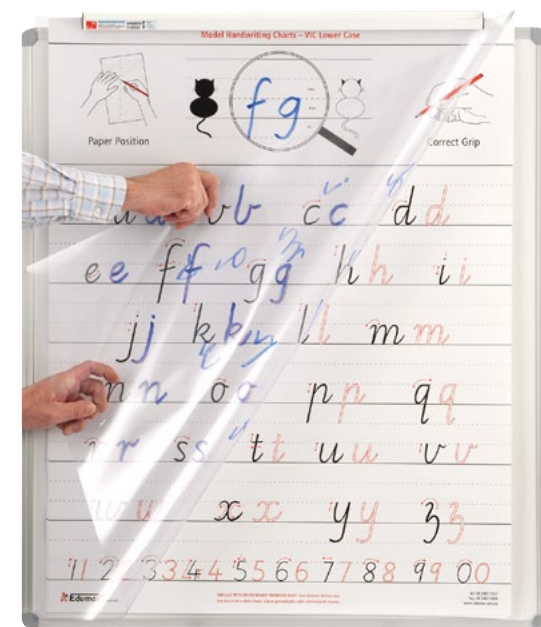 Model Handwriting Charts – VIC Lower Case
f g
Paper Position
Correct Grip
a a b b c c d d
e e f f g g h h i i
j j k k l l m m
n n o o p p q q
r r s s t t u u v v
w w x x y y z z
1 1 2 2 3 3 4 4 5 5 6 6 7 7 8 8 9 9 0 0